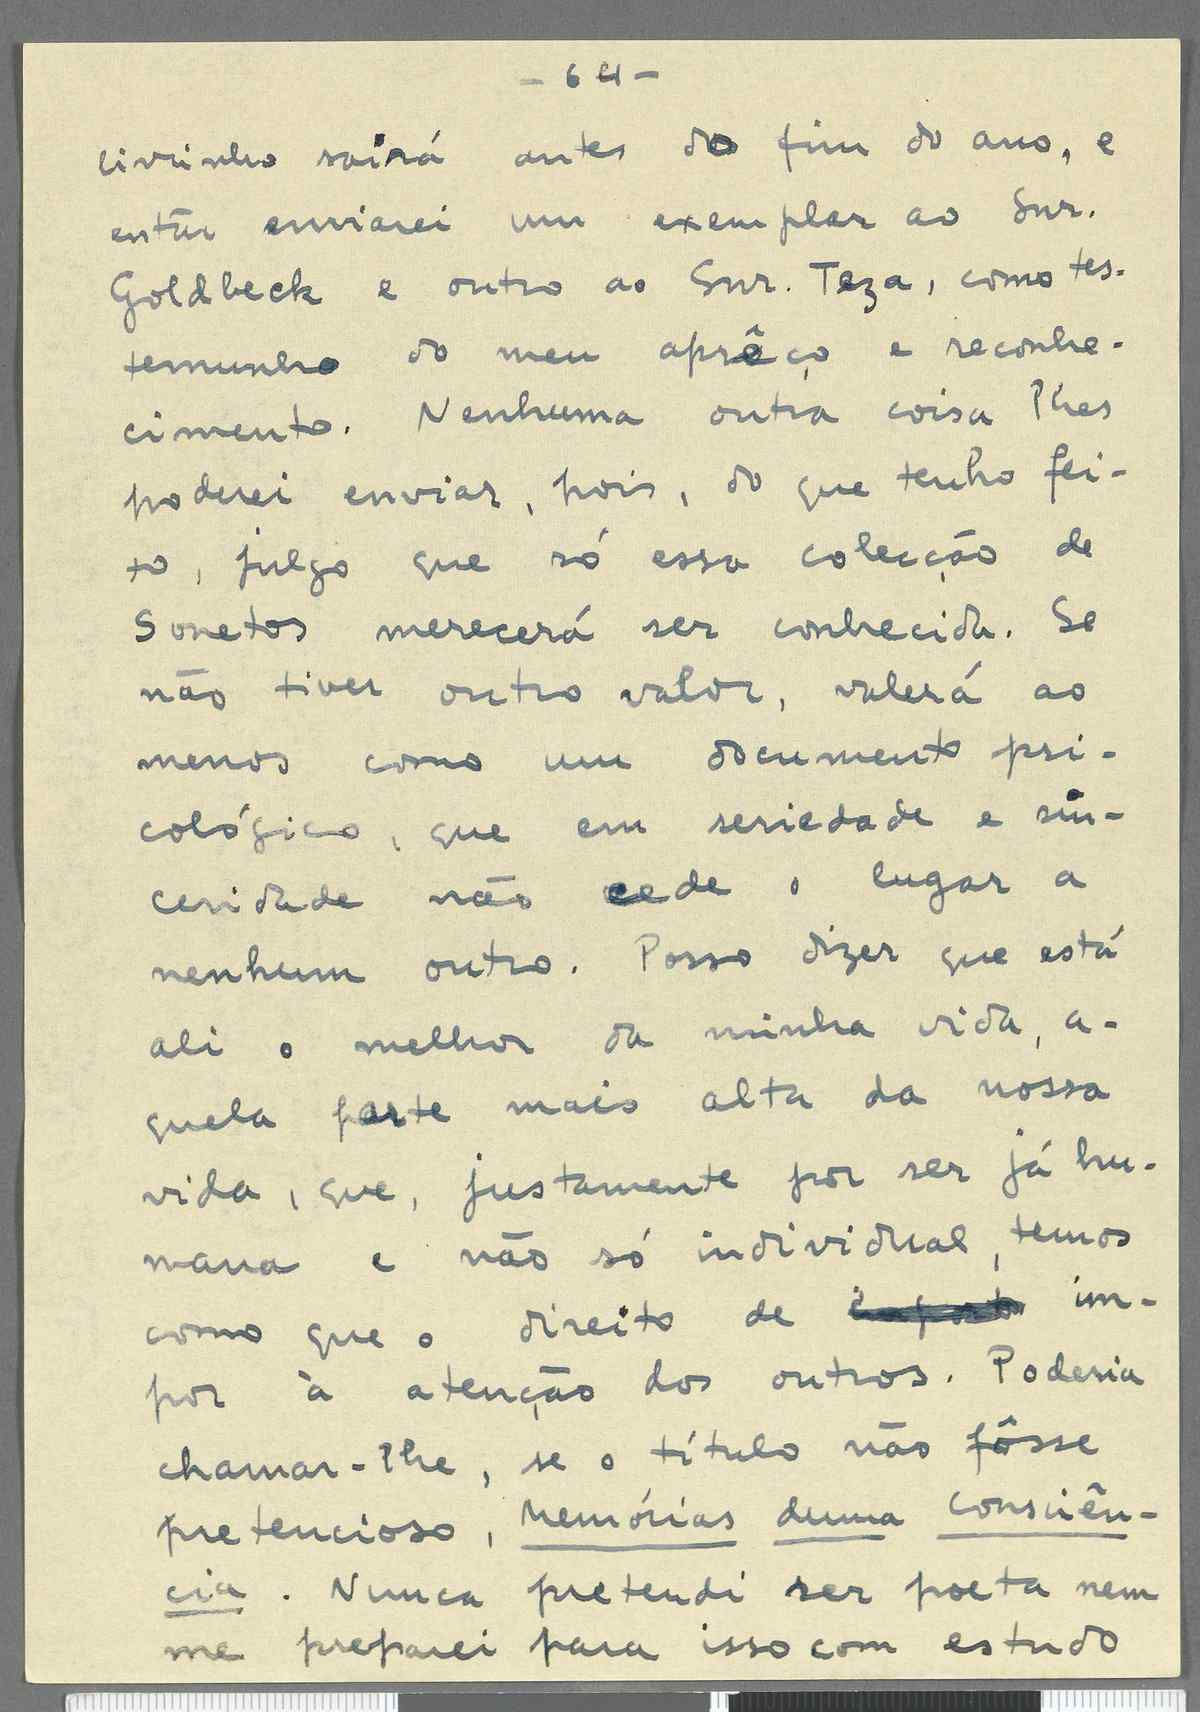 - 64 -
livrinho sairá antes do fim do ano, e
então enviarei um exemplar ao Snr.
Goldbeck e outro ao Snr. Teza, como tes-
temunho do meu aprêço e reconhe-
cimento. Nenhuma outra coisa lhes
poderei enviar, pois, do que tenho fei-
to, julgo que só essa colecção de
Sonetos merecerá ser conhecida. Se
não tiver outro valor, valerá ao
menos como um documento psi-
cológico, que em seriedade e sin-
ceridade não cede o lugar a
nenhum outro. Posso dizer que está
ali o melhor da minha vida, a-
quela parte mais alta da nossa
vida, que, justamente por ser já hu-
mana e não só individual, temos
como que o direito de im-
por à atenção dos outros. Poderia
chamar-lhe, se o título não fôsse
pretencioso, Memórias duma consciên-
cia. Nunca pretendi ser poeta nem
me preparei para isso com estudo